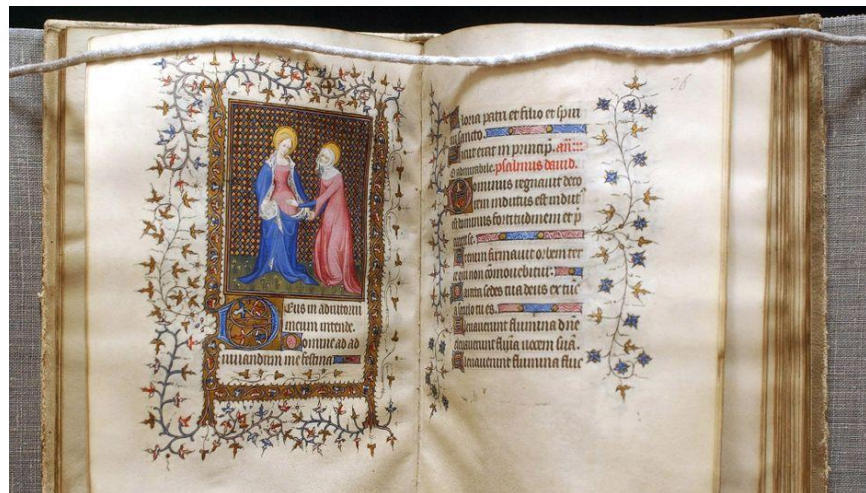 Deus in adiutorium
meum intende.
Domine ad ad
iuuandum me festina
26
Gloria patri et filio et spiri
tui sancto.
Sicut erat in princip. an̄
Admirabile. psalmus dauid.
Dominus regnauit deco
rem indutus est induit
dominus fortitudinem et p̄
cinxit se.
Etenim firmauit orbem ter
re qui non cōmouebitur.
Parata sedes tua deus ex tūc
a seculo tu es.
Eleuauerunt flumina dn̄e
eleuauerunt flumina uocem suā.
Eleuauerunt flumina fluc